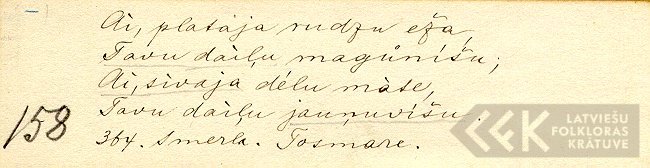 Ai, platāja rudzu eža,
Tavu dàiļu magůnìšu;
Ai, sìvaja dēlu màte,
Tavu dàiļu jauņuvìšu.
158
364. Smerla. Tosmare.
LATVIEŠU
FOLKLORAS
KRĀTUVE